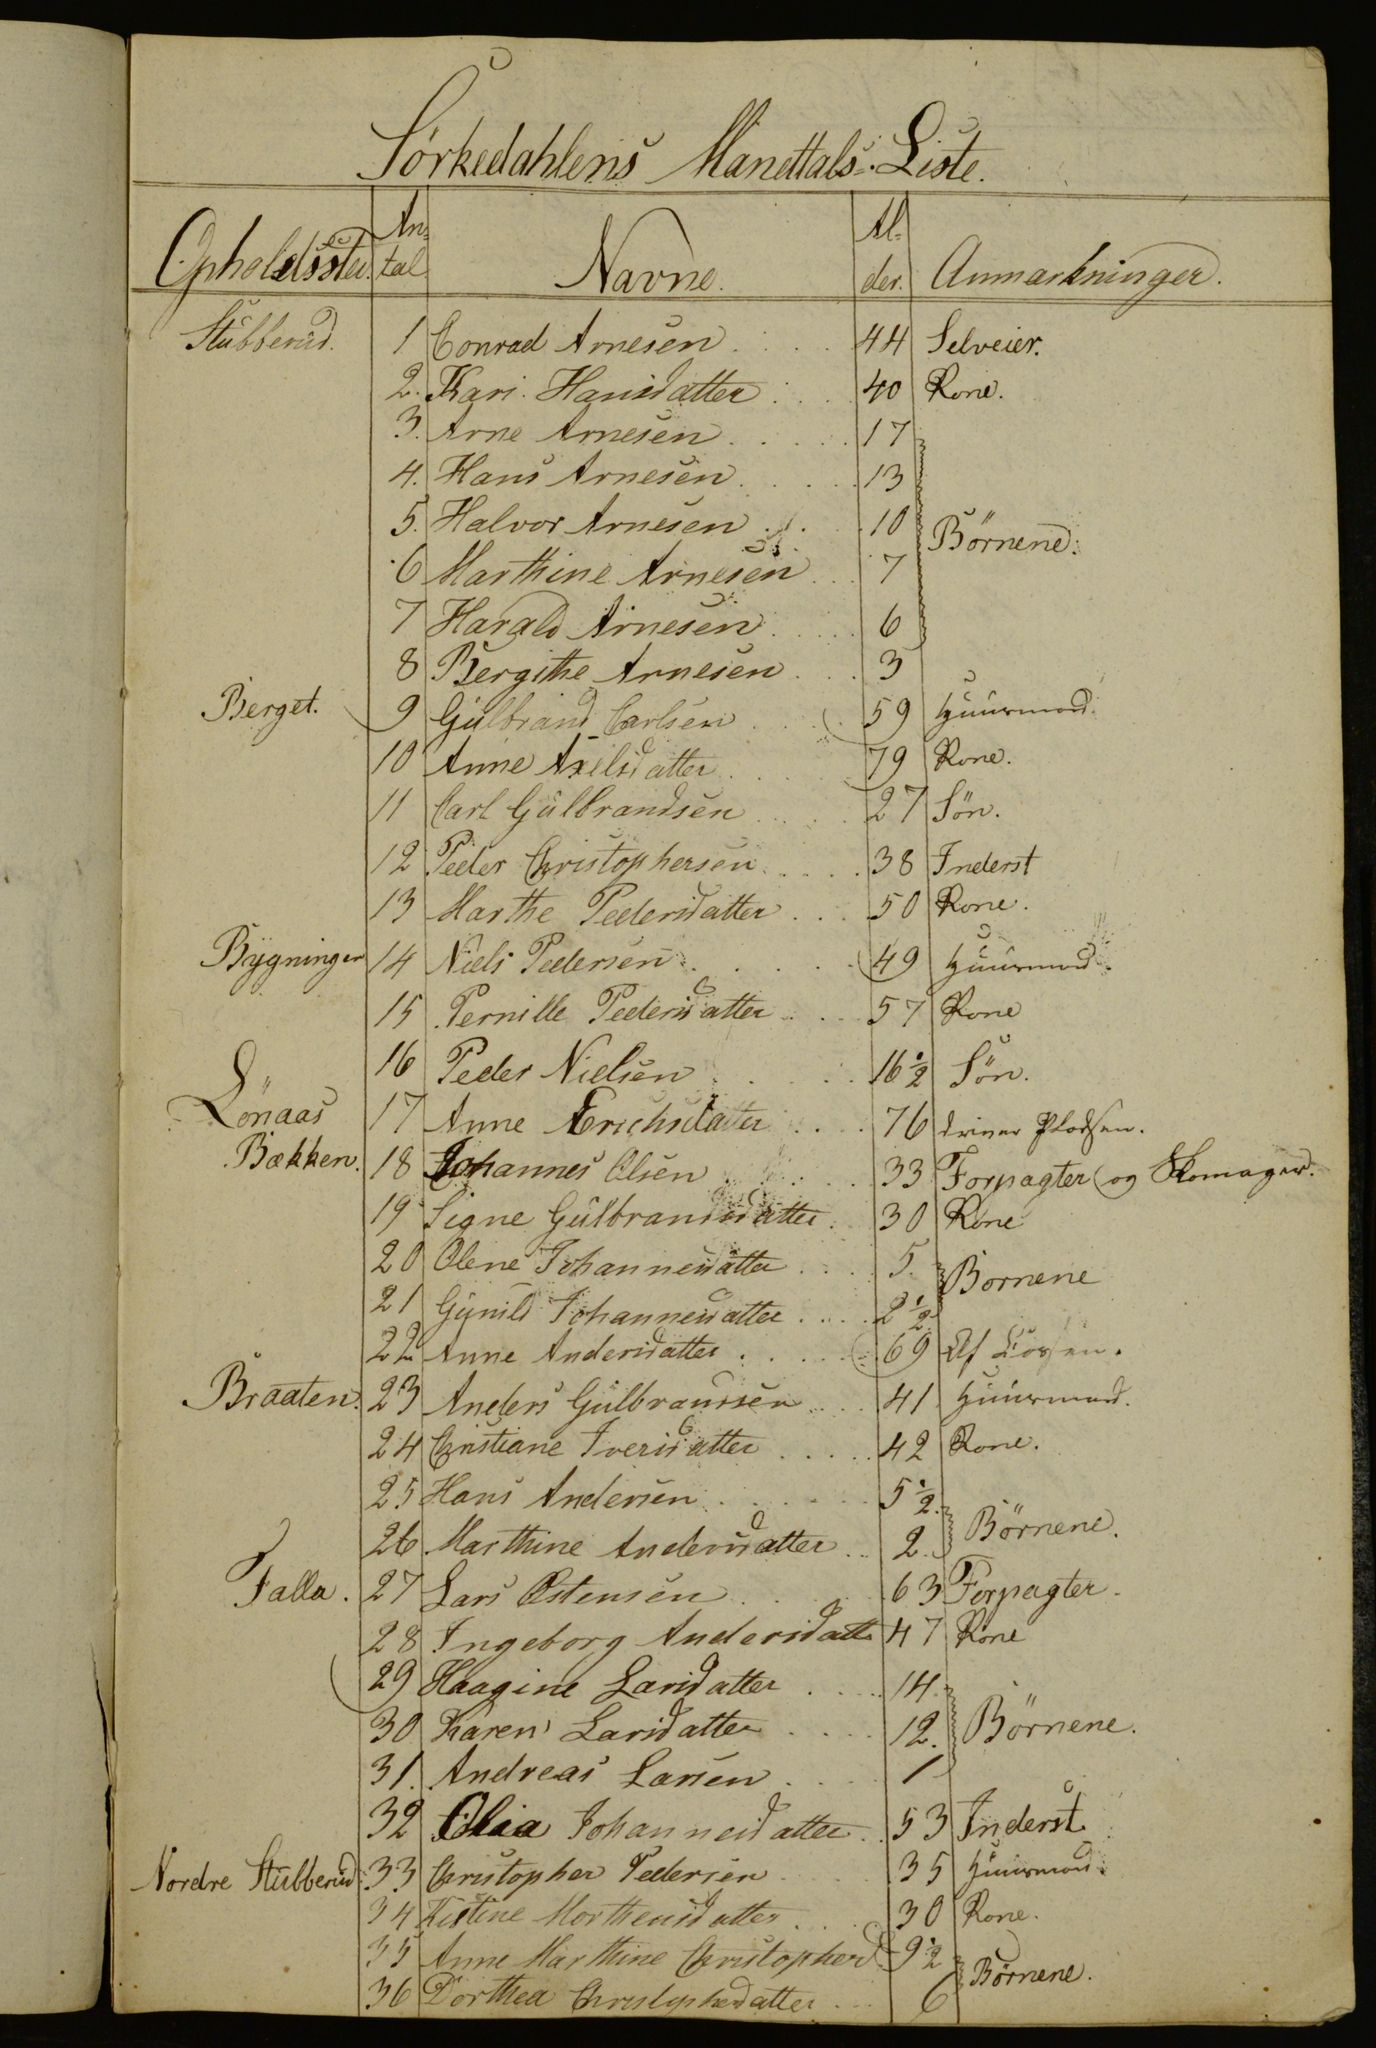 Sörkedahlens Mandtals-Liste.
Opholdssted. An-tal Navne. Al-der. Anmærkninger.
Stubberud. 1 Conrad Arnesen 44 Selveier.
2. Kari Hansdatter 40 Kone.
3. Arne Arnesen 17
4. Hans Arnesen 13
5. Halvor Arnesen 10 Börnene.
6 Marthine Arnesen 7
7 Harald Arnesen 6
8 Bergithe Arnesen 3
Berget. 9 Gulbrand Carlsen 59 Huusmand.
10 Anne Axelsdatter 79 Kone.
11 Carl Gulbrandsen 27 Sön.
12 Peder Christophersen 38 Inderst
13 Marthe Pedersdatter 50 Kone.
Bygningen 14 Niels Pedersen 49 Huusmand.
15 Pernille Pedersdatter 57 Kone
16 Peder Nielsen 16 1/2 Sön.
Lönaas 17 Anne Erichsdatter 76 driver Pladsen.
Bækken. 18 Johannes Olsen 33 Forpagter og Skomager.
19 Signe Gulbrandsdatter 30 Kone
20 Olene Johannesdatter 5. Bornene
21 Gunild Johannesdatter 2 1/2
22 Anne Andersdatter 69
Braaten. 23 Anders Gulbrandsen 41 Huusmand.
24 Christiane Iversdatter 42 Kone.
25 Hans Andersen 5 1/2
26 Marthine Andersdatter 2. Börnene.
Falla. 27 Lars Østensen 63 Forpagter.
28 Ingeborg Andersdatt 47 Kone
29 Haagine Larsdatter 14
30 Karen Larsdatter 12. Börnene.
31. Andreas Larsen 1
32 Olia Johannesdatter 53 Inderst
Nordre Stubberud 33 Christopher Pedersen 35 Huusmand.
34 Kistine Morthensdatter 30 Kone.
35 Anne Marthine Christophersd 9 1/2 Börnene.
36 Dorthea Christophersdatter 6